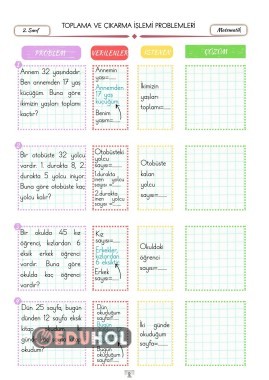 TOPLAMA VE ÇIKARMA İŞLEMİ PROBLEMLERİ
2. Sınıf
Matematik
PROBLEM
VERİLENLER
İSTENEN
ÇÖZÜM
Annem 32 yaşındadır.
Ben annemden 17 yaş
küçüğüm. Buna göre
ikimizin yaşları toplamı
kaçtır?
Annemin
yaşı=
Annemden
17 yaş
küçüğüm
Benim
yaşım=
İkimizin
yaşları
toplamı=
Bir otobüste 32 yolcu
vardır. 1. durakta 8, 2.
durakta 5 yolcu iniyor.
Buna göre otobüste kaç
yolcu kalır?
Otobüsteki
yolcu
sayısı=
1.durakta
inen yolcu
sayısı=
2.durakta
inen yolcu
sayısı=
Otobüste
kalan
yolcu
sayısı=
Bir okulda 45 kız
öğrenci, kızlardan 6
eksik erkek öğrenci
vardır. Buna göre
okulda kaç öğrenci
vardır?
Kız
sayısı=
Erkekler,
kızlardan
6 eksik
Erkek
sayısı=
Okuldaki
öğrenci
sayısı=
Dün 25 sayfa, bugün
dünden 12 sayfa eksik
kitap
okudum?
Dün
okuduğum
sayfa
Bugün
okuduğum
İki günde
okuduğum
EDUHOL